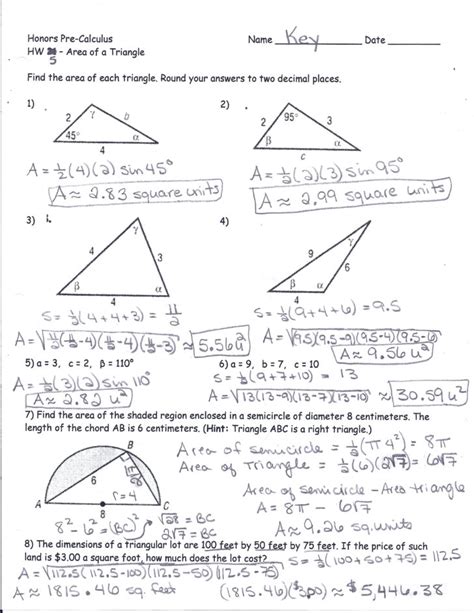 Honors Pre-Calculus Name Key Date
HW 5 - Area of a Triangle
Find the area of each triangle. Round your answers to two decimal places.
1) 2 γ b 45° α 4
A = ½(4)(2) sin 45°
A ≈ 2.83 square units
2) 2 95° 3 β α c
A = ½(2)(3) sin 95°
A ≈ 2.99 square units
3) 4 γ 3 β α 4
S = ½(4+4+3) = 11/2
A = √(11/2(11/2-4)(11/2-4)(11/2-3)) ≈ 5.56 u²
4) 9 γ 6 β α 4
S = ½(9+4+6) = 9.5
A = √(9.5(9.5-9)(9.5-4)(9.5-6))
A ≈ 9.56 u²
5) a = 3, c = 2, β = 110°
A = ½(3)(2) sin 110°
A ≈ 2.82 u²
6) a = 9, b = 7, c = 10
S = ½(9+7+10) = 13
A = √(13(13-9)(13-7)(13-10)) ≈ 30.59 u²
7) Find the area of the shaded region enclosed in a semicircle of diameter 8 centimeters. The
length of the chord AB is 6 centimeters. (Hint: Triangle ABC is a right triangle.)
B
6 √28
r=4
A 8 C
8² - 6² = (BC)² √28 = BC
2√7 = BC
Area of semicircle = ½(π4²) = 8π
Area of Triangle = ½(6)(2√7) = 6√7
Area of semicircle - Area triangle
A = 8π - 6√7
A ≈ 9.26 sq. units
8) The dimensions of a triangular lot are 100 feet by 50 feet by 75 feet. If the price of such
land is $3.00 a square foot, how much does the lot cost? S = ½(100+50+75) = 112.5
A = √(112.5(112.5-100)(112.5-50)(112.5-75))
A ≈ 1815.46 sq feet (1815.46)($3.00) ≈ $5,446.38